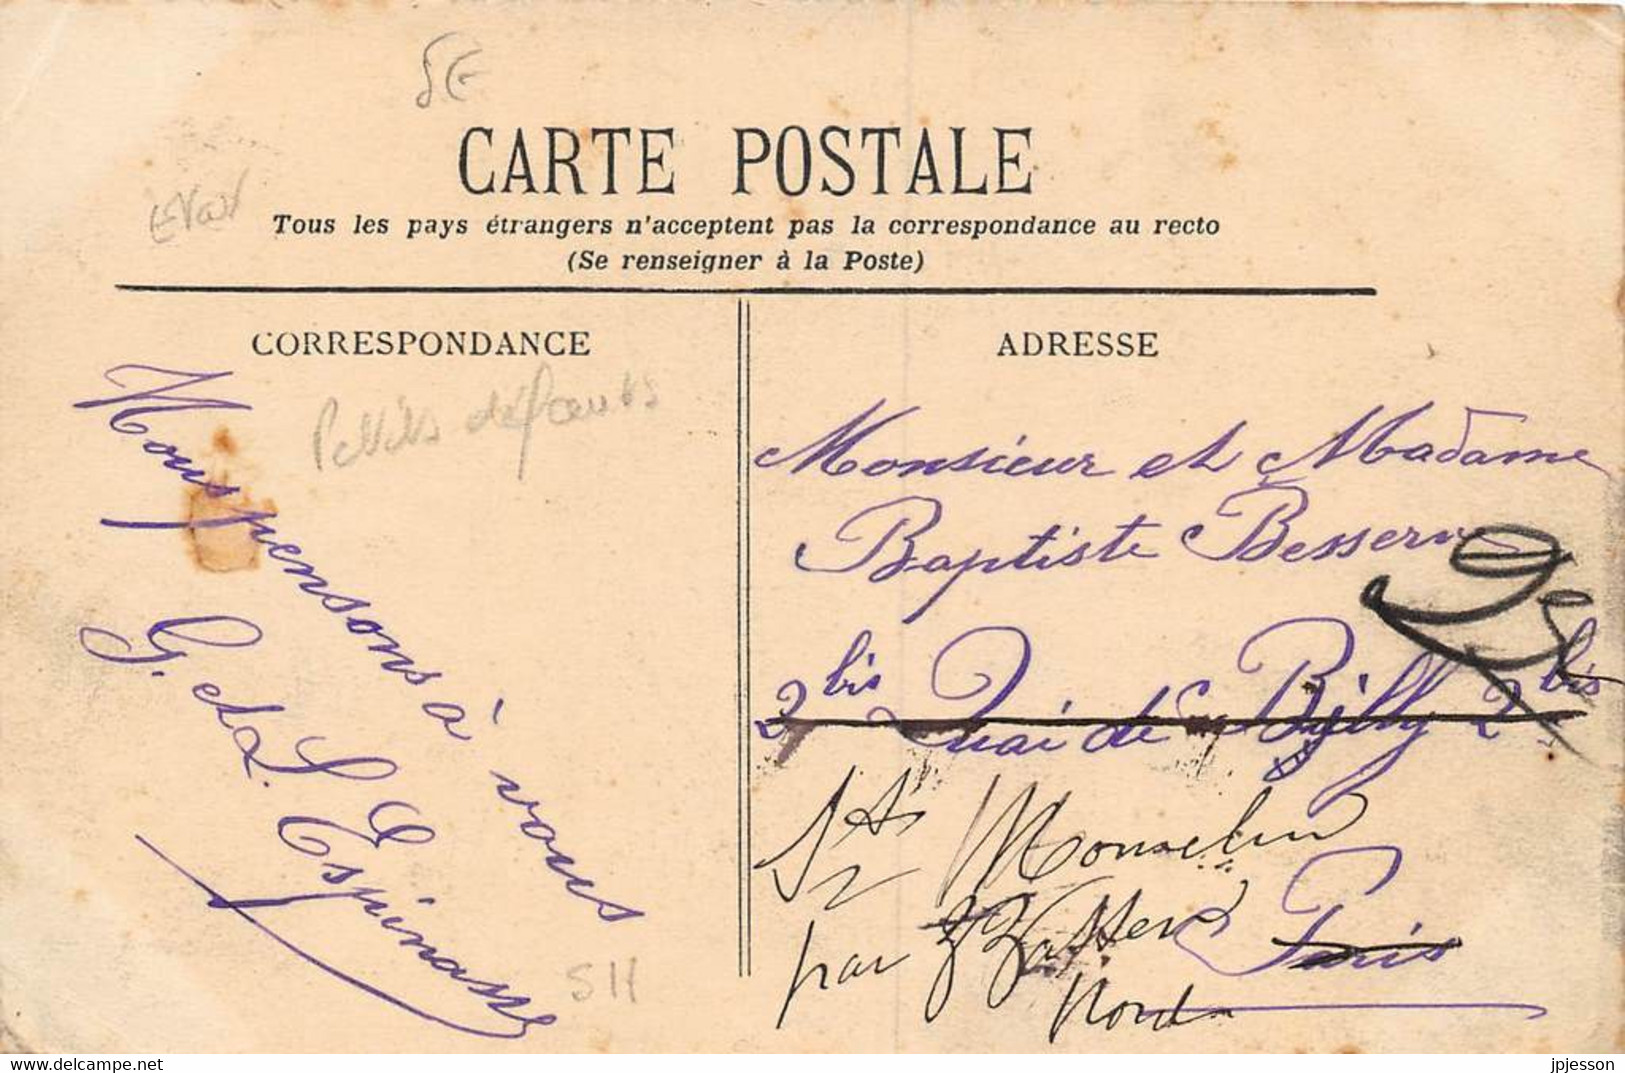 5€
CARTE POSTALE
Tous les pays étrangers n'acceptent pas la correspondance au recto
(Se renseigner à la Poste)
CORRESPONDANCE
Petits défauts
Nous pensons à vous
G. et L. Espinasse
SH
ADRESSE
Monsieur et Madame
Baptiste Besserve
2 bis Quai de Billy 2 bis
par
Nord
Paris
Delcampe.net
jpjesson